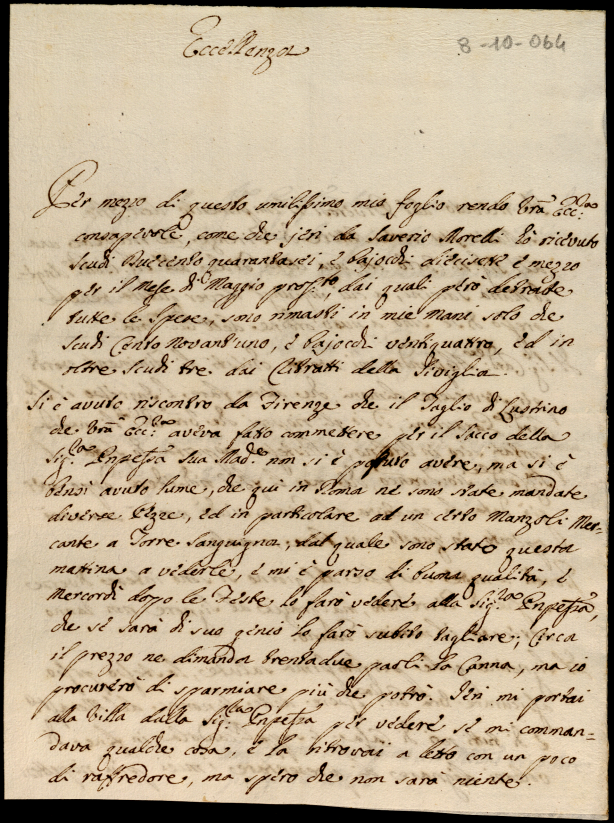 Eccellenza
8-10-064
Per mezzo di questo umilissimo mio foglio rendo Vrã Ecc.za
consapevole, come che jeri da Saverio Morelli hò ricevuto
scudi Duecento quarantasei, è bajocchi diecisete è mezzo
per il Mese di Maggio pross.to, dai quali però detratte
tutte le spese, sono rimasti in mie Mani solo che
scudi Cento Novant'uno, è bajocchi ventiquattro, ed in
oltre scudi tre dai Ritratti della
Si è avuto riscontro da Firenze che il Taglio di Lustrino
che Vrã Ecc.za aveva fatto commettere per il Sacco della
Sig.ra Pnpessa sua Mad.e non si è potuto avere, ma si è
bensì avuto lume, che qui in Roma ne sono state mandate
diverse Pezze, ed in particolare ad un certo Manzoli Mer-
cante a Torre Sanguigna, dal quale sono stato questa
mattina a vederle, è mi è parso di buona qualità, è
Mercordì dopo le Feste lo farò vedere alla Sig.ra Pnpessa,
che se sarà di suo genio lo farò subito tagliare; Circa
il prezzo ne dimanda trentadue paoli la Canna, ma io
procurerò di sparmiare più che potrò. Jeri mi portai
alla Villa dalla Sig.ra Pnpessa per vedere se mi comman-
dava qualche cosa, è la ritrovai a letto con un poco
di raffredore, ma spero che non sarà niente.